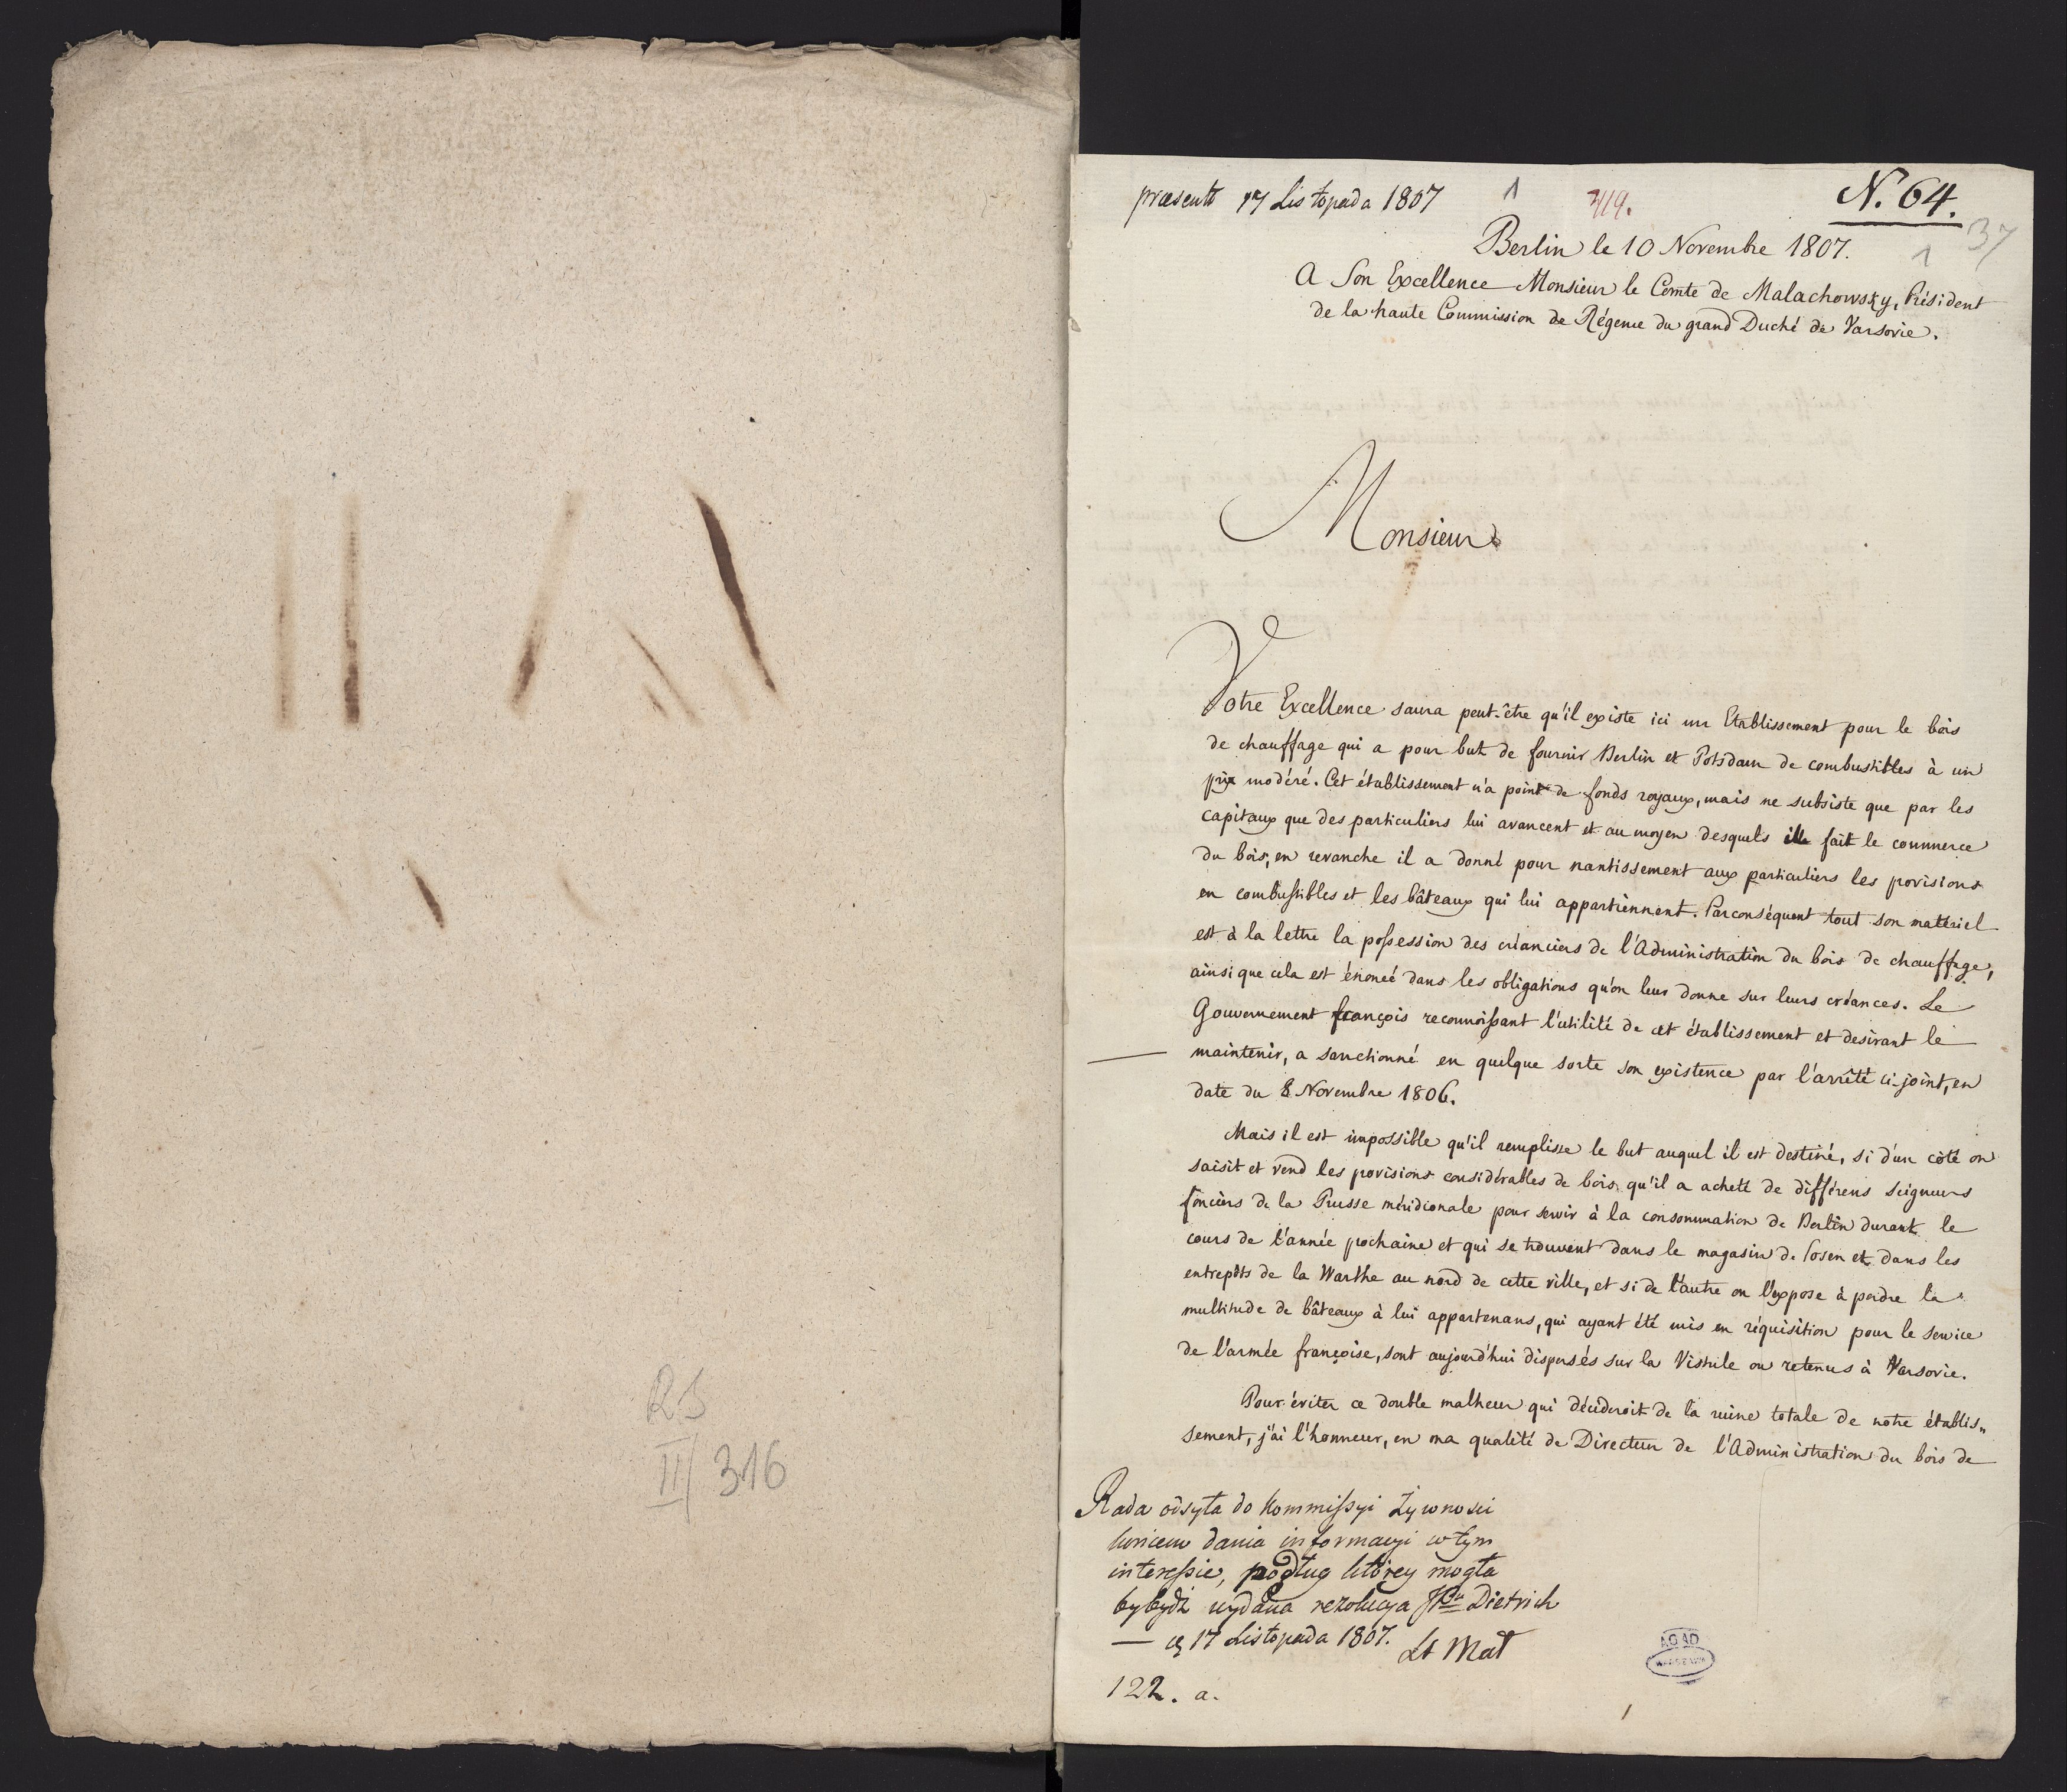 RS
III/316
praesent 17 Listopada 1807
1
N. 64.
37
1
Berlin le 10 Novembre 1807.
A Son Excellence Monsieur le Comte de Malachowsky, Président
de la haute Commission de Régence du grand Duché de Varsovie.
Monsieur
Votre Excellence saura peut-être qu'il existe ici un Etablissement pour le bois
de chauffage qui a pour but de fournir Berlin et Potsdam de combustibles à un
prix modéré. Cet établissement n'a point de fonds royaux, mais ne subsiste que par les
capitaux que des particuliers lui avancent et au moyen desquels il fait le commerce
du bois; en revanche il a donné pour nantissement aux particuliers les provisions
en combustibles et les bâteaux qui lui appartiennent. Parconséquent tout son matériel
est à la lettre la possession des créanciers de l'Administration du bois de chauffage,
ainsi que cela est énoncé dans les obligations qu'on leur donne sur leurs créances. Le
Gouvernement françois reconnoissant l'utilité de cet établissement et desirant le
maintenir, a sanctionné en quelque sorte son existence par l'arrêté ci-joint, en
date du 8 Novembre 1806.
Mais il est impossible qu'il remplisse le but auquel il est destiné, si d'un côté on
saisit et vend les provisions considérables de bois qu'il a acheté de différens seigneurs
fonciers de la Prusse méridionale pour servir à la consommation de Berlin durant le
cours de l'année prochaine et qui se trouvent dans le magasin de Posen et dans les
entrepôts de la Warthe au nord de cette ville, et si de l'autre on l'expose à perdre la
multitude de bâteaux à lui appartenans, qui ayant été mis en réquisition pour le service
de l'armée françoise, sont aujourd'hui dispersés sur la Vistule ou retenus à Varsovie.
Pour éviter ce double malheur qui décideroit de la ruine totale de notre établis„
sement, j'ai l'honneur, en ma qualité de Directeur de l'Administration du bois de
Rada odsyła do Kommissyi Żywnosci
końcem dania informacyi w tym
interessie, podług którey mogła
bybydź wydana rezolucya Dietrich
17 Listopada 1807.
St Mał
122. a.
AGAD
1